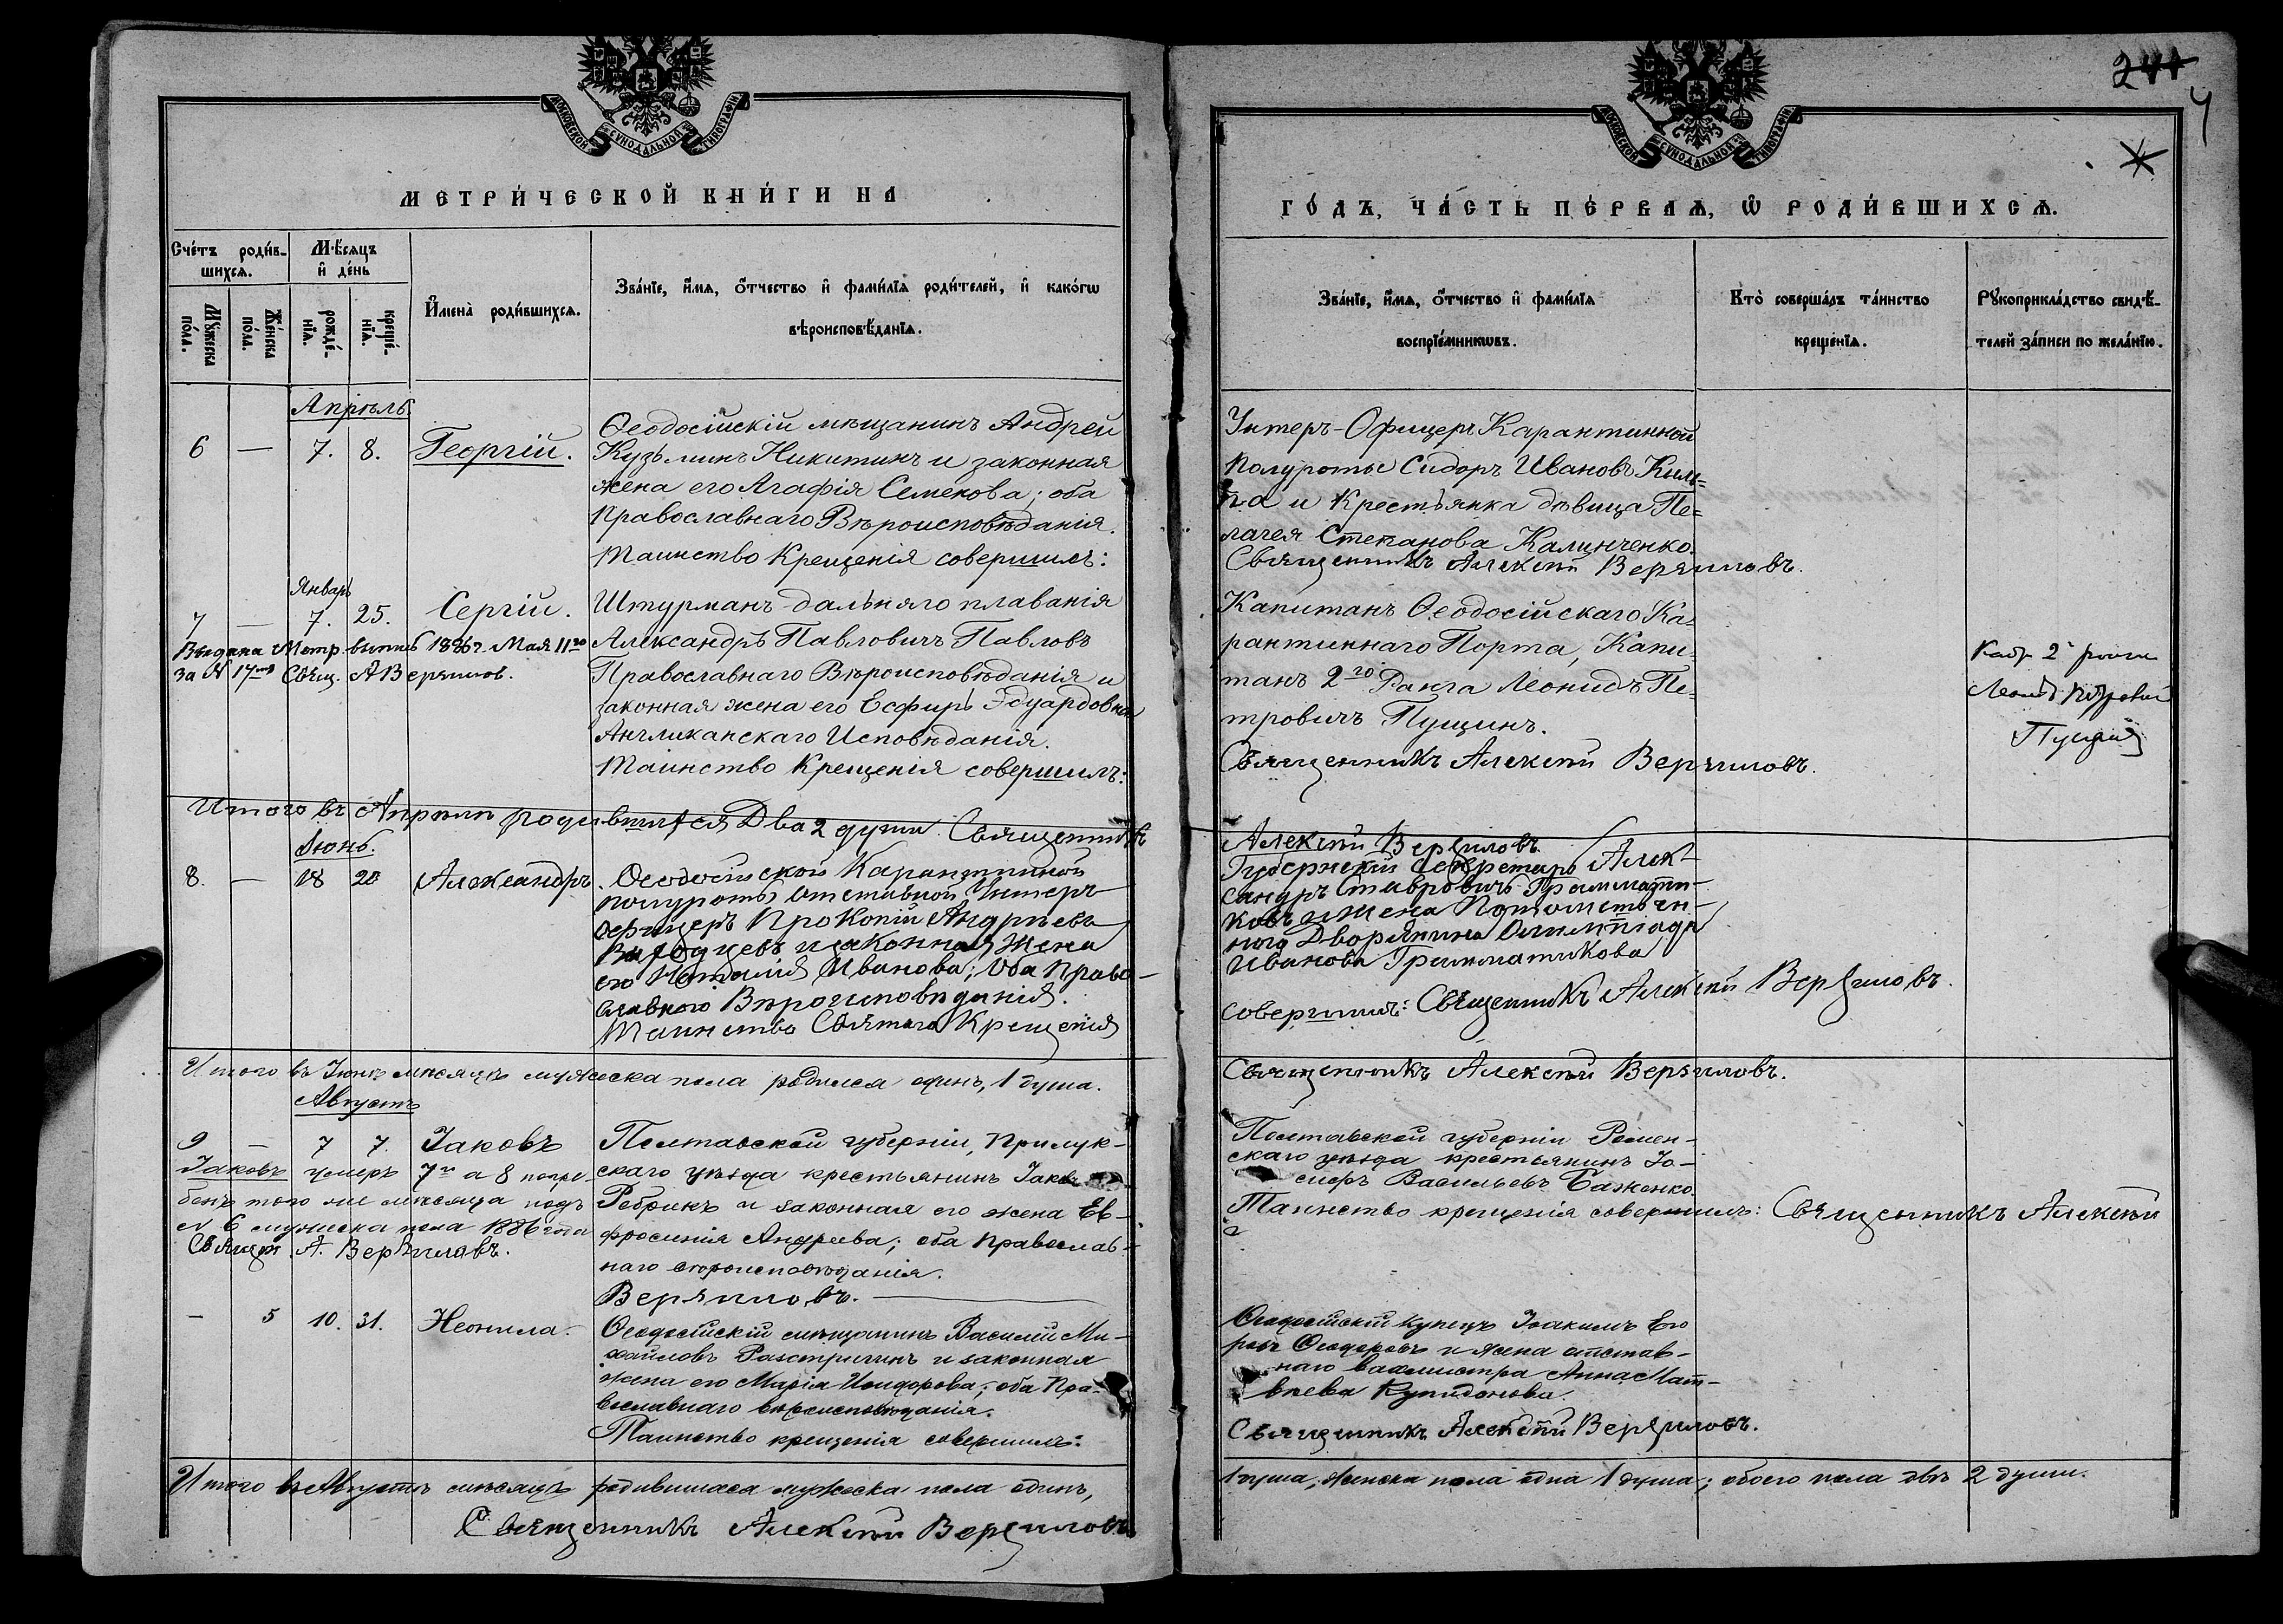 МОСКОВСКОЙ СѴНОДАЛЬНОЙ ТИПОГРАФІИ
МЕТРИ́ЧЕСКОЙ КНИ́ГИ НА
Сче́тъ роди́в-
шихсѧ.
Мѣ́сѧцъ
и҆ де́нь
И҆мена̀ роди́вшихсѧ.
Зва́нїе, и҆́мѧ, ѻ҆́тчество и҆ фами́лїѧ роди́телей, и҆ како́гѡ
вѣроисповѣ́данїѧ.
Мꙋ́жеска
по́ла.
Же́нска
по́ла.
рожде́-
нїѧ.
креще́-
нїѧ.
Апрѣль.
6 — 7. 8. Георгій.
Ѳеодосійскій мѣщанинъ Андрей
Кузьминъ Никитинъ и законная
жена его Агафія Семенова; оба
Православнаго Вѣроисповѣданія.
Таинство Крещенія совершилъ:
Январь
7 — 7. 25. Сергій.
Выдана Метр. выпись 1886 г. Мая 11го
за N 17мъ Свящ. А Верзиловъ.
Штурманъ дальняго плаванія
Александръ Павловичъ Павловъ
Православнаго Вѣроисповѣданія и
законная жена его Есфирь Эдуардовна
Англиканскаго Исповѣданія.
Таинство Крещенія совершилъ:
Итого въ Апрѣлѣ родившихся Два 2 души. Священникъ
Іюнь.
8. — 18 20 Александръ.
Ѳеодосійской Карантинной
полуроты отставной Унтеръ
офицеръ Прокопій Андреевъ
и законная жена
его Наталія Иванова; Оба Право-
славнаго Вѣроисповѣданія.
Таинство Святаго Крещенія
Итого въ Іюнѣ мѣсяцѣ мужеска пола родился одинъ, 1 душа.
Августъ
9 — 7 7. Іаковъ
Іаковъ умеръ 7го а 8 погре-
бенъ того же мѣсяца подъ
N 6 мужеска пола 1886 года
Свящ. А. Верзиловъ.
Полтавской губерніи, Прилук-
скаго уѣзда крестьянинъ Іаковъ
Ребрикъ и законная его жена Ев-
фросинія Андреева; оба Православ-
наго вѣроисповѣданія.
Верзиловъ.
— 5 10. 31. Неонила.
Ѳеодосійскій мѣщанинъ Василій Ми-
хайловъ Растригинъ и законная
жена его Марія Исидорова; оба Пра-
вославнаго вѣроисповѣданія.
Таинство крещенія совершилъ:
Итого въ Августѣ мѣсяцѣ родившихся мужеска пола одинъ,
Священникъ Алексѣй Верзиловъ
241
4
МОСКОВСКОЙ СѴНОДАЛЬНОЙ ТИПОГРАФІИ
ГО́ДЪ, ЧА́СТЬ ПЕ́РВАѦ, Ѡ҆ РОДИ́ВШИХСѦ.
Зва́нїе, и҆́мѧ, ѻ҆́тчество и҆ фами́лїѧ
воспрїе́мникѡвъ.
Кто̀ соверша́лъ та́инство
креще́нїѧ.
Рꙋкоприкла́дство свидѣ́-
телей за́писи по жела́нїю.
Унтеръ-Офицеръ Карантинной
Полуроты Сидоръ Ивановъ
и Крестьянка дѣвица Пе=
лагея Степанова Калинченко.
Священникъ Алексѣй Верзиловъ.
Капитанъ Ѳеодосійскаго Ка-
рантиннаго Порта, Капи-
танъ 2го Ранга Леонидъ Пе-
тровичъ Пущинъ.
Священникъ Алексѣй Верзиловъ.
Кап. 2 ранга
Леонидъ Петровичъ
Пущинъ
Алексѣй Верзиловъ.
Губернскій Секретарь Алек-
сандръ Ставровичъ Граммати-
ковъ и жена Потомствен-
наго Дворянина Олимпіада
Иванова Грамматикова
совершилъ: Священникъ Алексѣй Верзиловъ.
Священникъ Алексѣй Верзиловъ.
Полтавской губерніи Ромен-
скаго уѣзда крестьянинъ Іо-
сифъ Васильевъ Баженко.
Таинство крещенія совершилъ: Священникъ Алексѣй
Ѳеодосійскій купецъ Іоакимъ Его
ровъ Ѳеодоровъ и жена отстав-
наго вахмистра Анна Мат-
вѣева Купидонова.
Священникъ Алексѣй Верзиловъ.
1 душа, женска пола одна 1 душа; обоего пола двѣ 2 души.